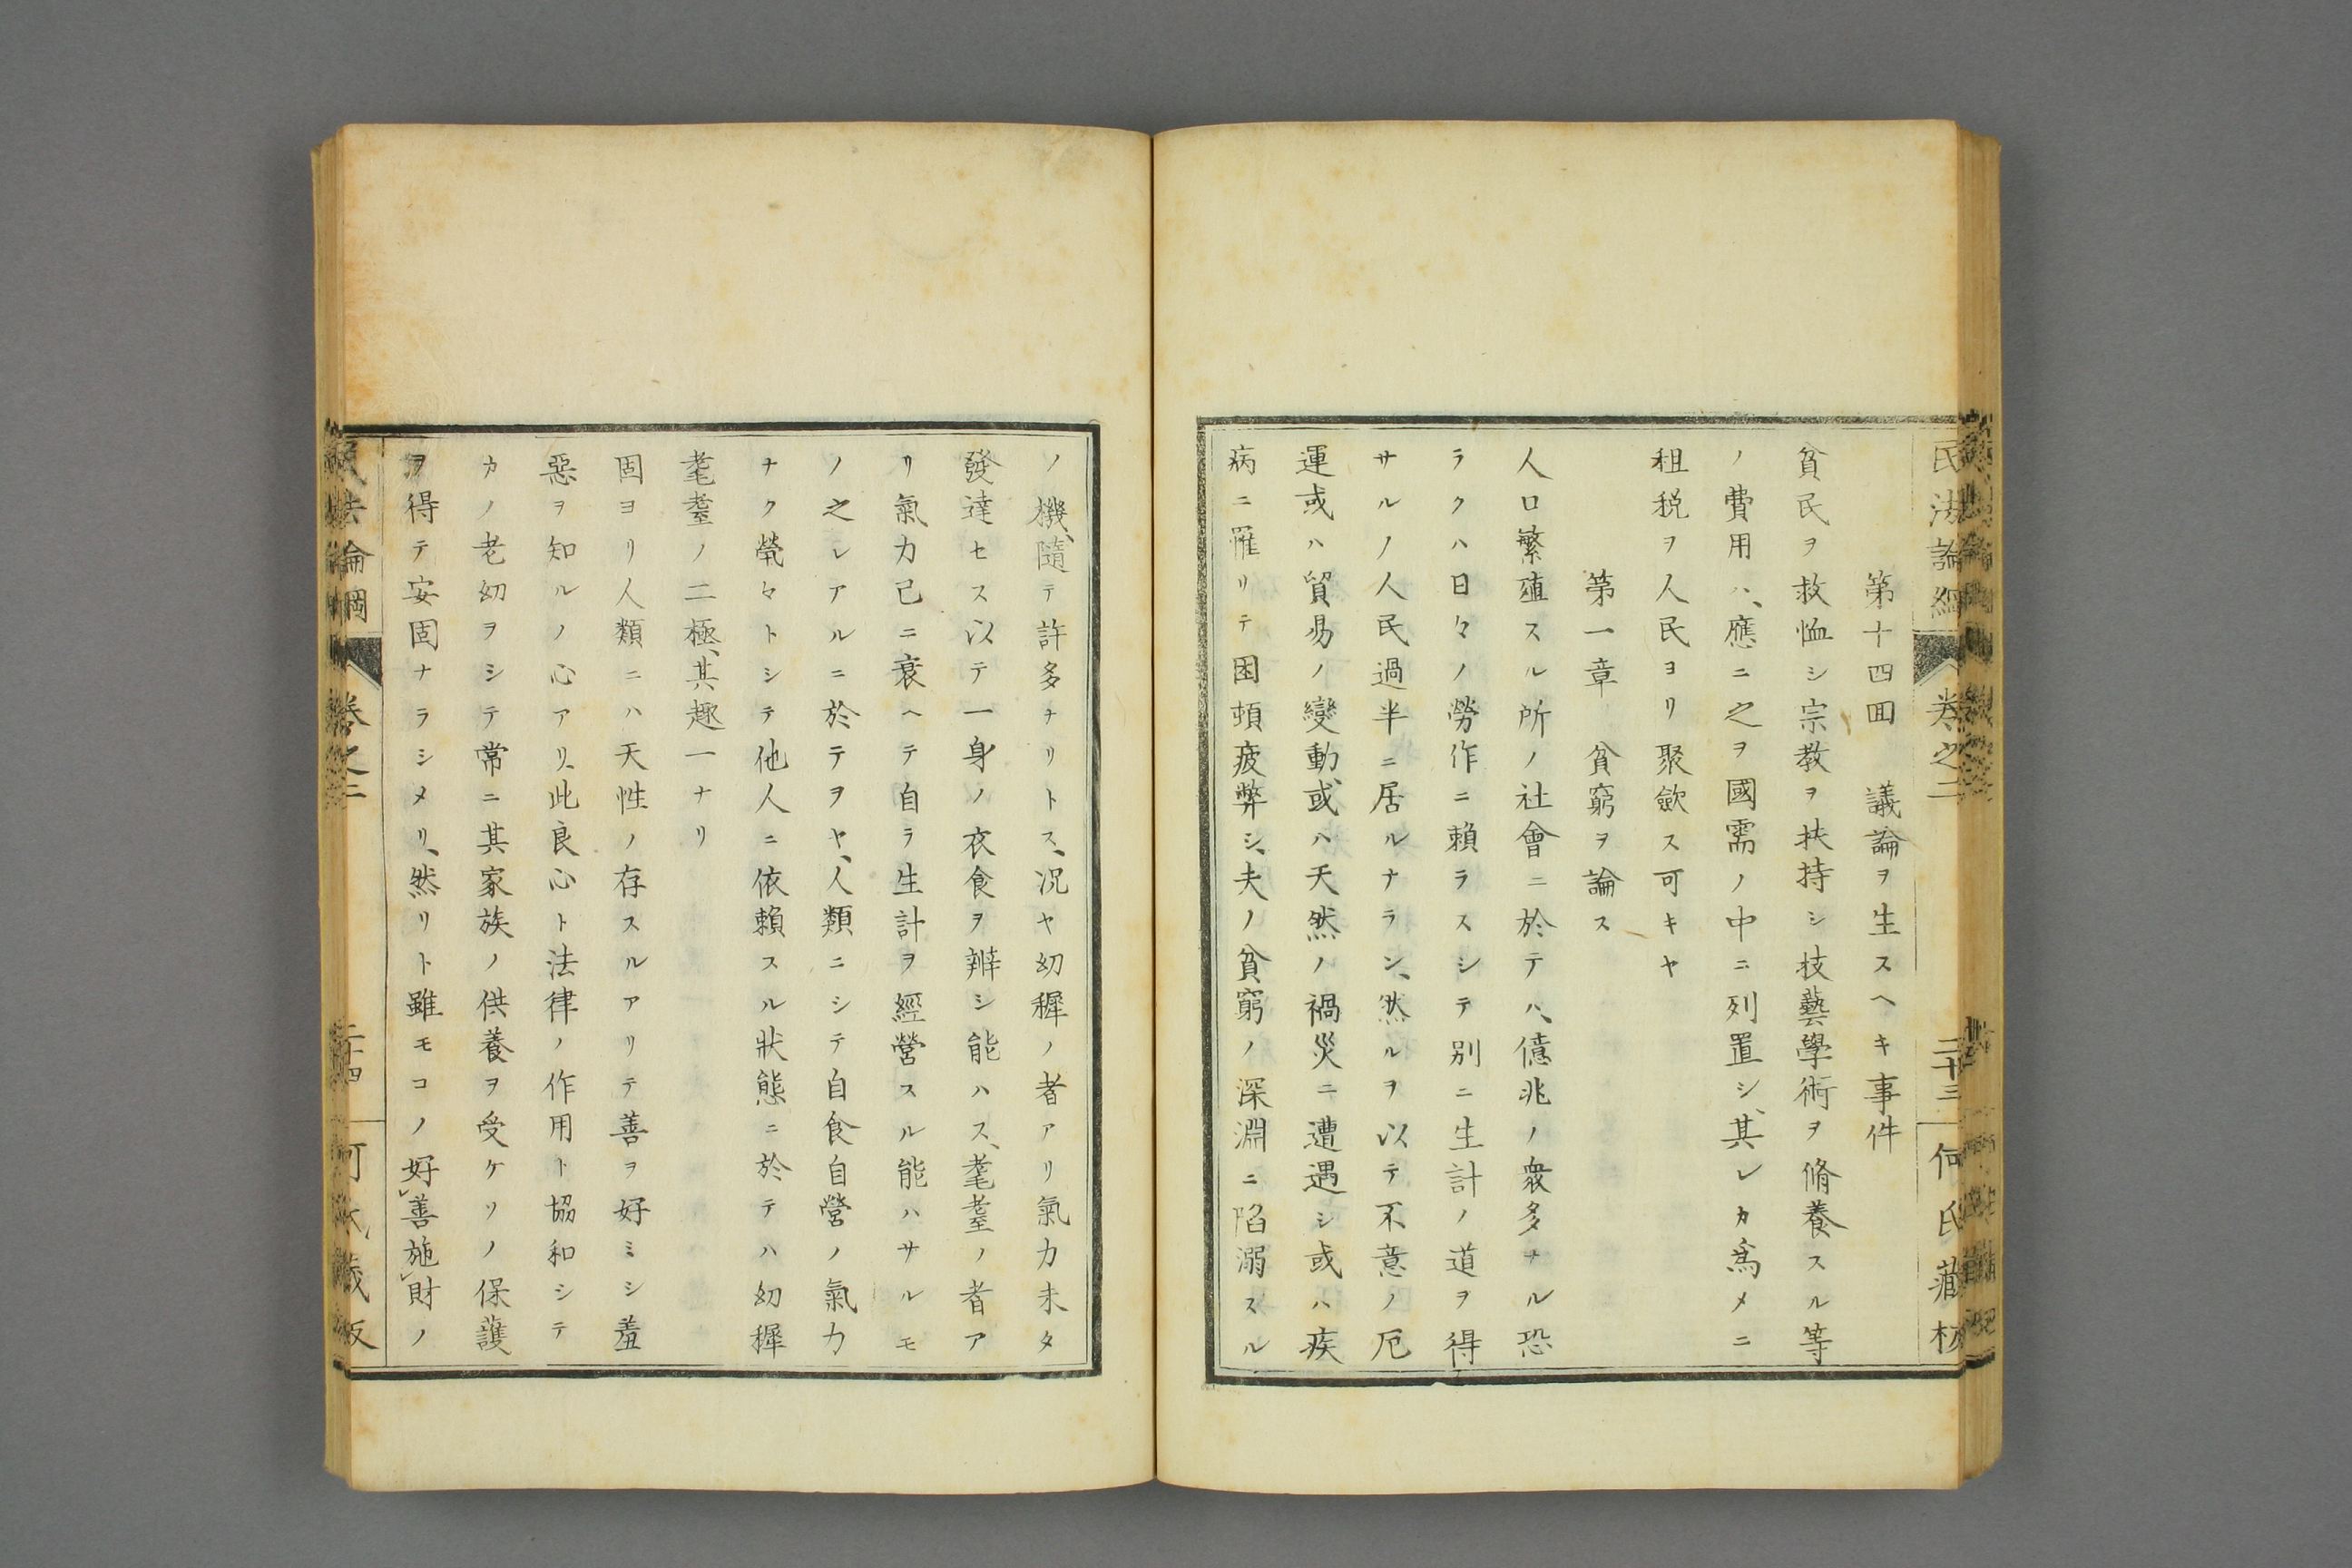 民法論綱 卷之二 二十三 何氏藏板
第十四囘 議論ヲ生スヘキ事件
貧民ヲ救恤シ宗教ヲ扶持シ技藝學術ヲ脩養スル等
ノ費用ハ、應ニ之ヲ國需ノ中ニ列置シ、其レカ爲メニ
租税ヲ人民ヨリ聚歛ス可キヤ
第一章 貧窮ヲ論ス
人口繁殖スル所ノ社會ニ於テハ、億兆ノ衆多ナル恐
ラクハ日々ノ勞作ニ賴ラスシテ別ニ生計ノ道ヲ得
サルノ人民過半ニ居ルナラン、然ルヲ以テ不意ノ厄
運或ハ貿易ノ變動、或ハ天然ノ禍災ニ遭遇シ或ハ疾
病ニ罹リテ困頓疲弊シ、夫ノ貧窮ノ深淵ニ陷溺スル
ノ機、隨テ許多ナリトス、况ヤ幼穉ノ者アリ氣力未タ
發達セス以テ一身ノ衣食ヲ辨シ能ハス、耄耋ノ者ア
リ氣力已ニ衰ヘテ自ラ生計ヲ經營スル能ハサルモ
ノ之レアルニ於テヲヤ、人類ニシテ自食自營ノ氣力
ナク煢々トシテ他人ニ依賴スル狀態ニ於テハ幼穉
耄耋ノ二極、其趣一ナリ
固ヨリ人類ニハ天性ノ存スルアリテ善ヲ好ミシ羞
惡ヲ知ルノ心アリ、此良心ト法律ノ作用ト協和シテ
カノ老幼ヲシテ常ニ其家族ノ供養ヲ受ケソノ保護
ヲ得テ安固ナラシメリ、然リト雖モコノ好善施財ノ
民法論綱 卷之二 二十四 何氏藏板